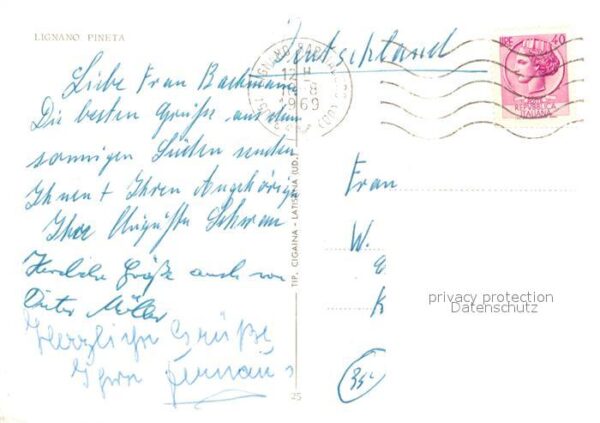 LIGNANO PINETA
Deutschland
LIRE 40
REPUBBLICA
ITALIANA
12 H
8
1969
Liebe Frau Bachmann
Die besten Grüße aus dem
sonnigen Süden senden
Ihnen + Ihren Angehörige
Ihre Augusta Schwan
Herzliche Grüße auch von
Dieter Möller
Herzliche Grüße
Ihre
Frau
W.
K
privacy protection
Datenschutz
TIP. CIGAINA - LATISANA (UD.)
25